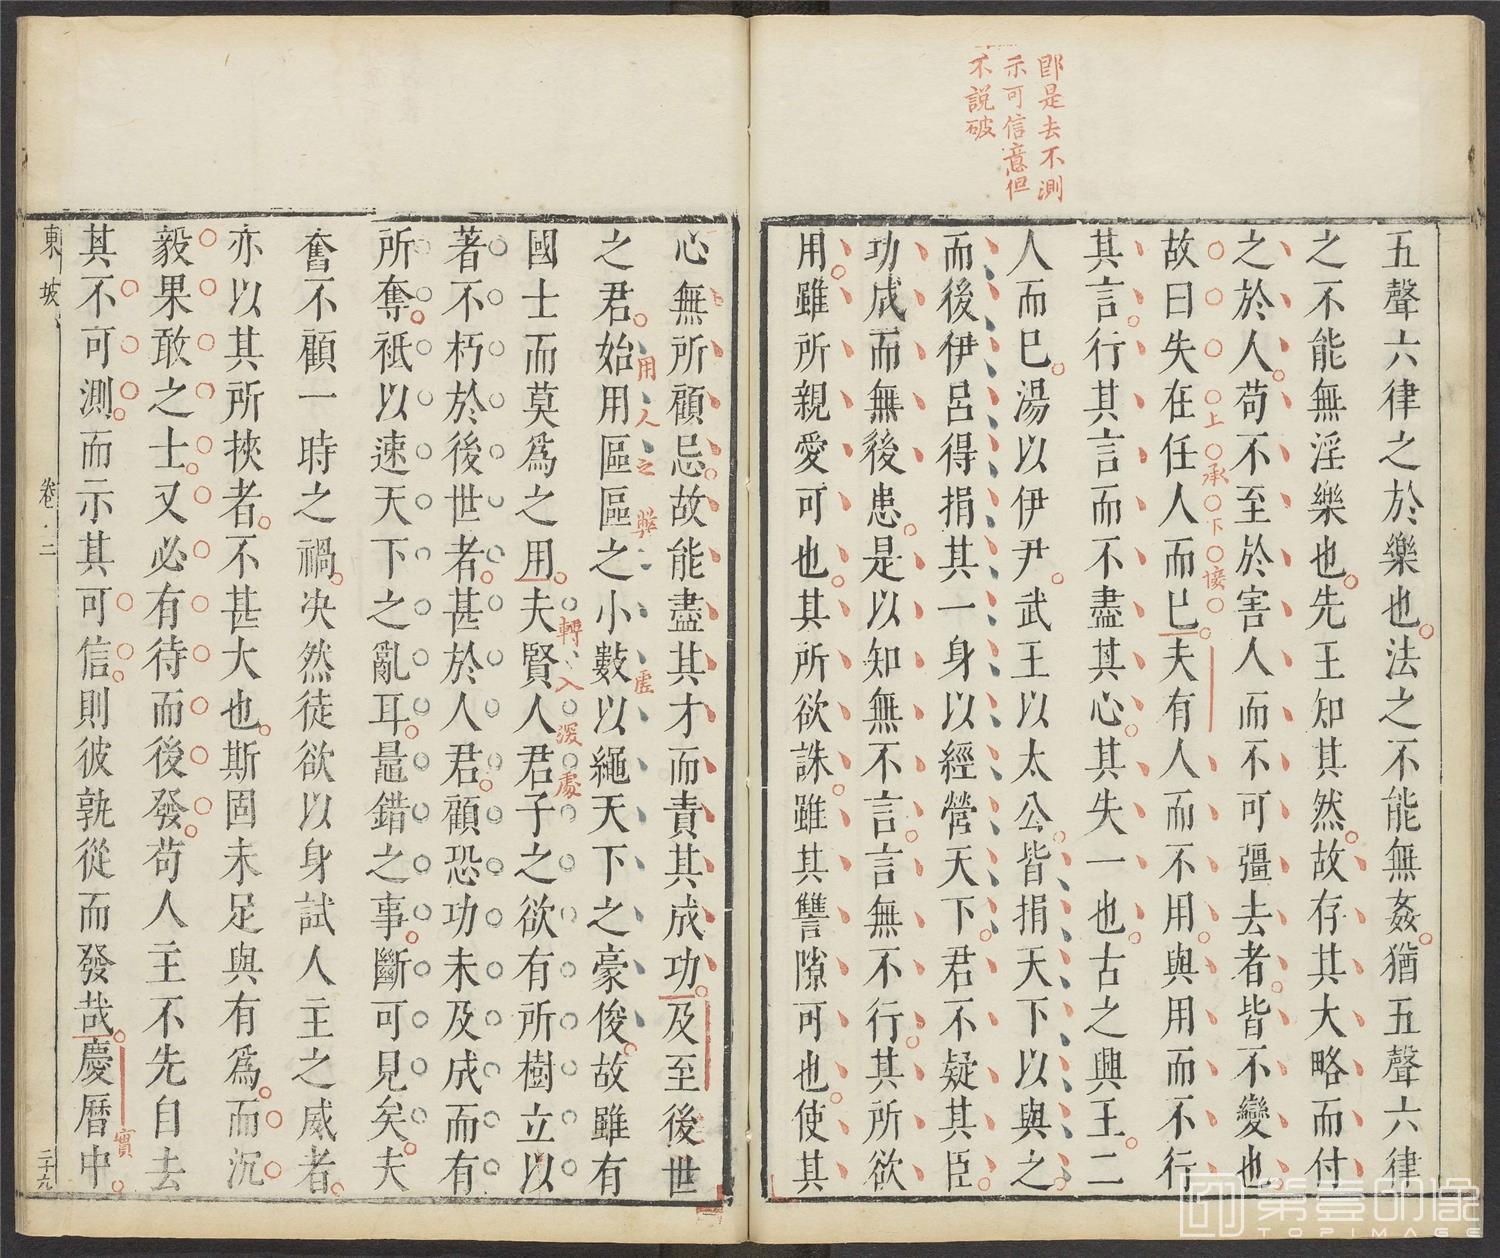 即是去不測
示可信意但
不說破
五聲六律之於樂也法之不能無姦猶五聲六律
之不能無淫樂也先王知其然故存其大略而付
之於人苟不至於害人而不可彊去者皆不變也
故曰失在任人而已夫有人而不用與用而不行
上承下接
其言行其言而不盡其心其失一也古之興王二
人而已湯以伊尹武王以太公皆捐天下以與之
而後伊呂得捐其一身以經營天下君不疑其臣
功成而無後患是以知無不言言無不行其所欲
用雖所親愛可也其所欲誅雖其讐隙可也使其
心無所顧忌故能盡其才而責其成功及至後世
之君始用區區之小數以繩天下之豪俊故雖有
用人之弊
虛
國士而莫爲之用夫賢人君子之欲有所樹立以
轉入深處
著不朽於後世者甚於人君顧恐功未及成而有
所奪祗以速天下之亂耳鼂錯之事斷可見矣夫
奮不顧一時之禍决然徒欲以身試人主之威者
亦以其所挾者不甚大也斯固未足與有爲而沉
毅果敢之士又必有待而後發苟人主不先自去
其不可測而示其可信則彼孰從而發哉慶曆中
實
東坡 卷二 二十九
第壹映像
TOPIMAGE